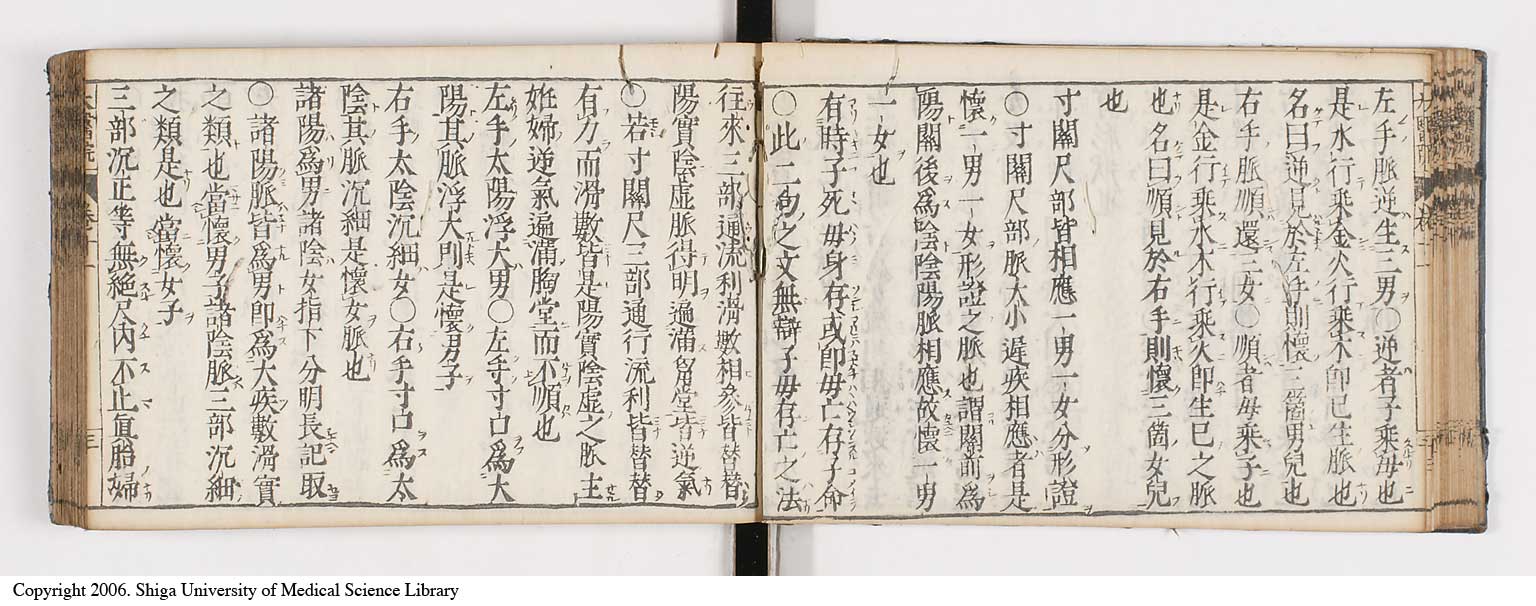 左手脈逆生三男〇逆者子乘母也
是水行乘金火行乘木即已生脈也
名曰逆見於左手則懷三箇男兒也
右手脈順還三女〇順者母乘子也
是金行乘水木行乘火即生已之脈
也名曰順見於右手則懷三箇女兒
也
寸關尺部皆相應一男一女分形證
〇寸關尺部脈大小遲疾相應者是
懷一男一女形證之脈也謂關前爲
陽關後爲陰陰陽脈相應故懷一男
一女也
有時子死母身存或即母亡存子命
〇此二句之文無辯子母存亡之法
往來三部通流利滑數相參皆替替
陽實陰虛脈得明遍滿胷堂皆逆氣
〇若寸關尺三部通行流利皆替替
有力而滑數皆是陽實陰虛之脈主
姙婦逆氣遍滿胸堂而不順也
左手太陽浮大男〇左手寸口爲太
陽其脈浮大則是懷男子
右手太陰沉細女〇右手寸口爲太
陰其脈沉細是懷女脈也
諸陽爲男諸陰女指下分明長記取
〇諸陽脈皆爲男即爲大疾數滑實
之類也當懷男子諸陰脈三部沉細
之類是也當懷女子
三部沉正等無絕尺內不止真胎婦
Copyright 2006. Shiga University of Medical Science Library